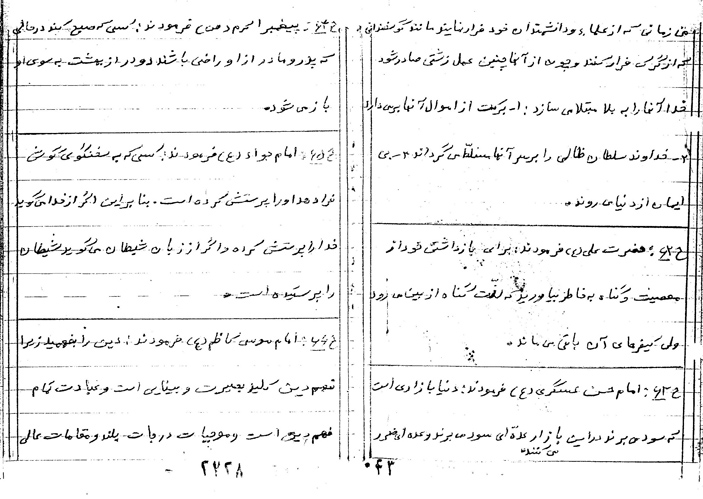 زمانی که از علماء و دانشمندان خود فرار نمایند مانند گوسفندانی
که از گرگ فرار کنند و چون از آنها چنین عمل زشتی صادر شود
خدا آنها را به بلا مبتلا می سازد: ۱- برکت از اموال آنها برمی دارد
۲- خداوند سلطان ظالمی را بر سر آنها مسلط می گرداند ۳- بی
ایمان از دنیا می روند.
ح۶۲: حضرت علی (ع) فرمودند: برای بازداشتن خود از
معصیت و گناه به خاطر بیاورید که لذت گناه از بین می رود
ولی کیفرهای آن باقی می ماند.
ح۶۳: امام حسن عسگری (ع) فرمودند: دنیا بازاری است
که سود می برند در این بازار عده ای سود می برند و عده ای ضرر
می کنند.
۴۳
ح۶۴: پیغمبر اکرم (ص) فرمودند: کسی که صبح کند در حالی
که پدر و مادر از او راضی باشند دو در از بهشت به سوی او
باز می شود.
ح۶۵: امام جواد (ع) فرمودند: کسی که به سخنگوئی گوش
فرا دهد او را پرستش کرده است. بنابراین اگر از خدا می گوید
خدا را پرستش کرده و اگر از زبان شیطان می گوید شیطان
را پرستیده است.
ح۶۶: امام موسی کاظم (ع) فرمودند: دین را بفهمید زیرا
فهم دین کلید بصیرت و بینایی است و عبادت تمام
فهم دین است و موجبات درجات بلند و مقامات عالی
۲۲۲۸